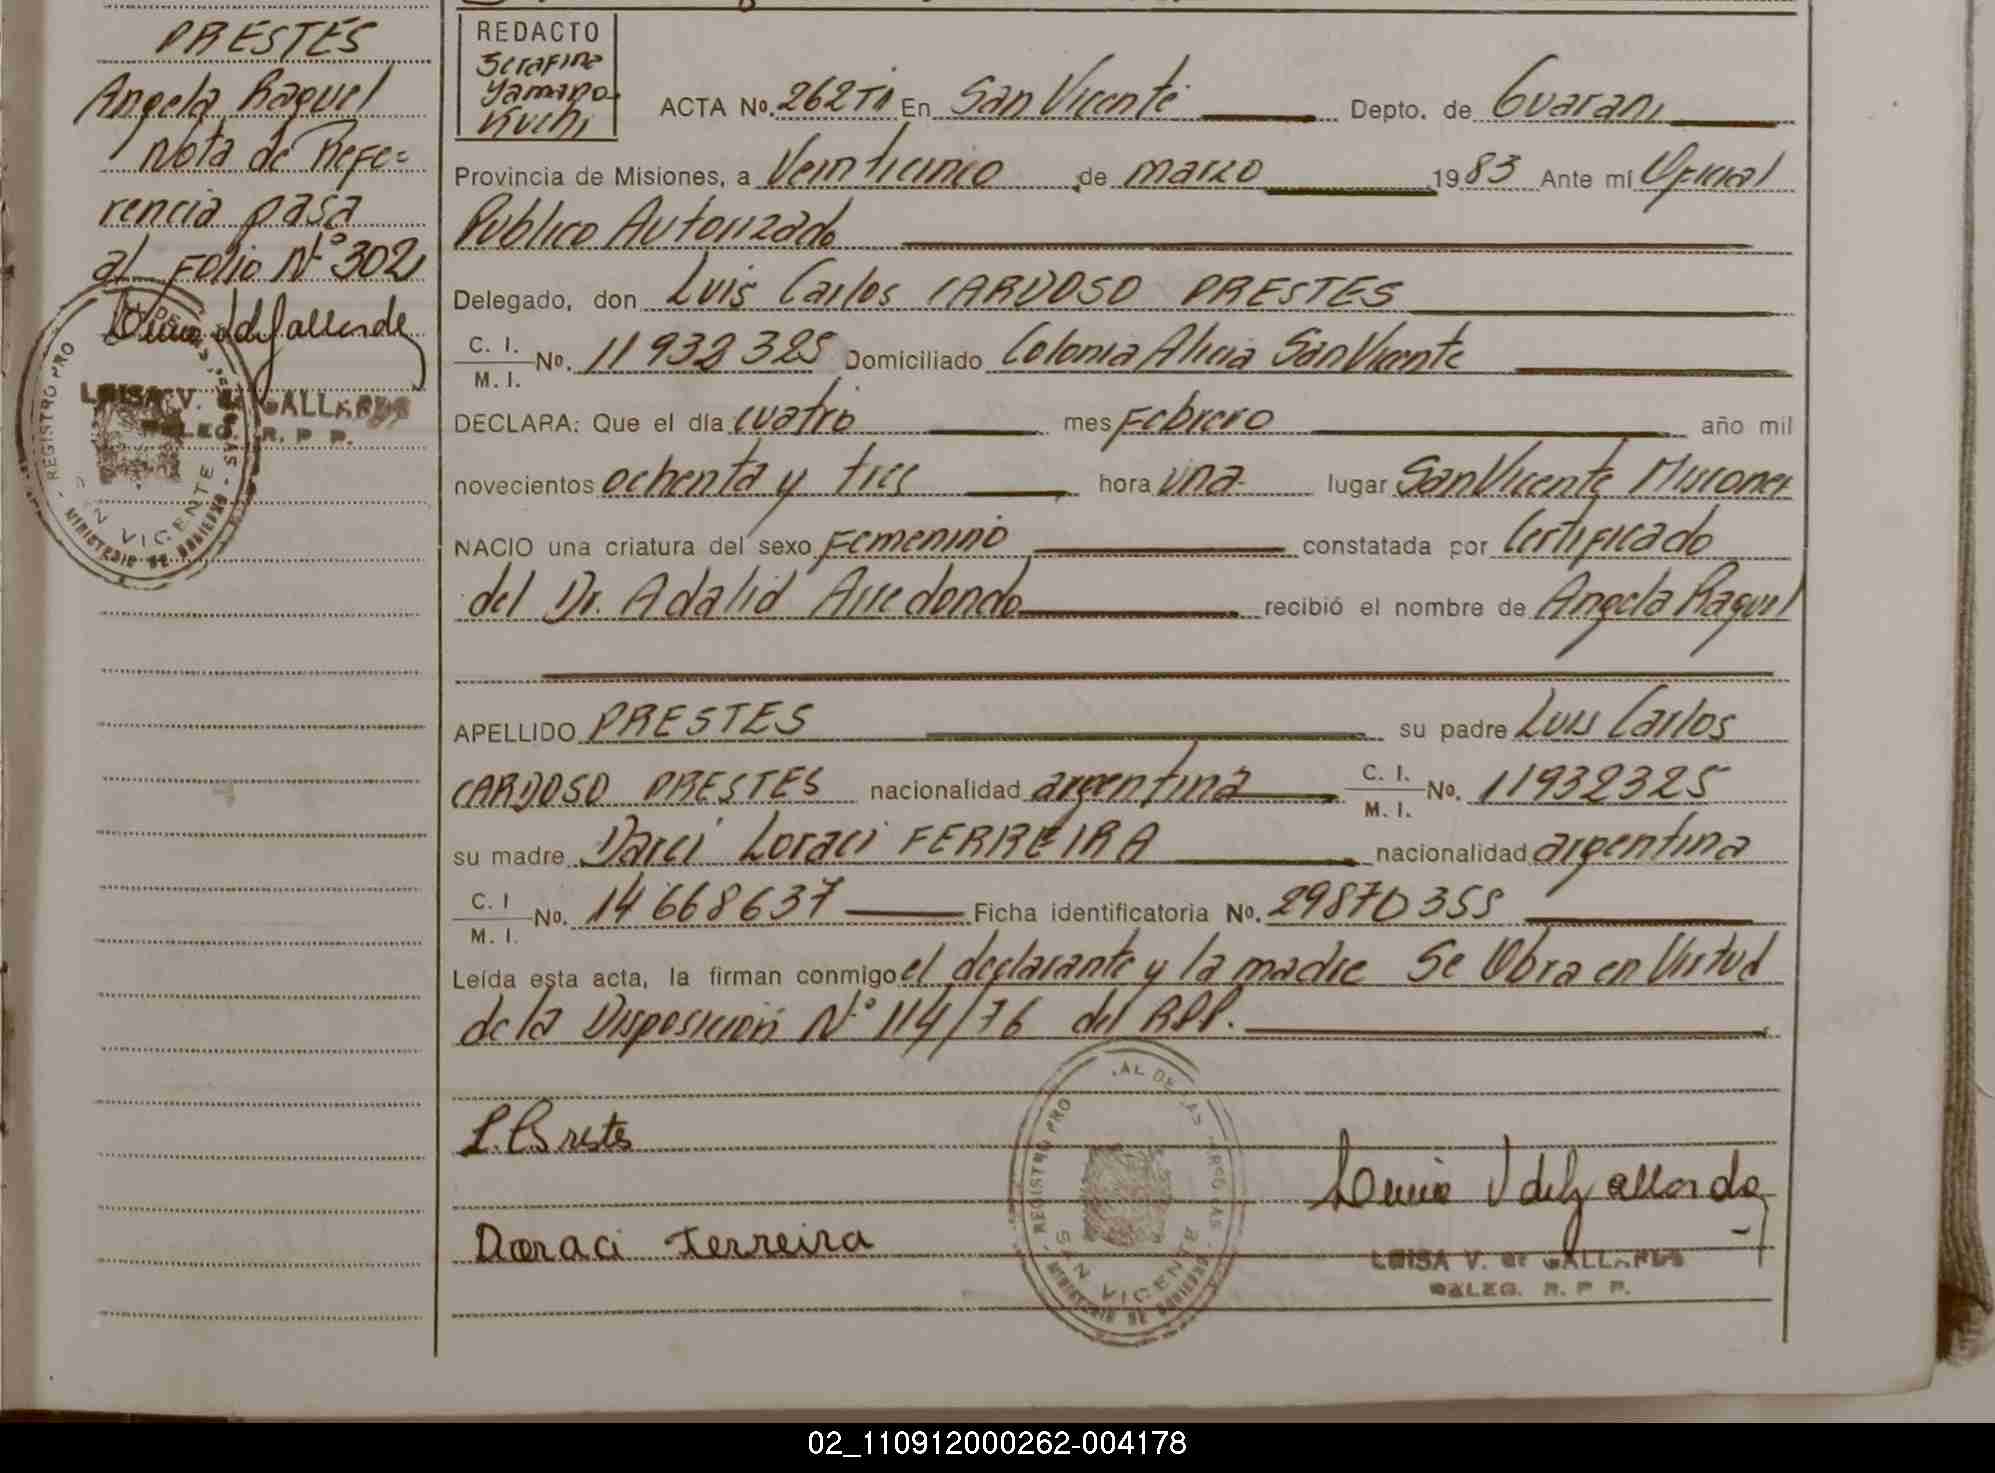 PRESTES
Angela Raquel
Nota de Refe=
rencia pasa
al Folio N° 302
LUISA V. de GALLARDO
DELEG. R. P. P.
REGISTRO PRO
SAN VICENTE
MINISTERIO DE GOBIERNO
REDACTO
Serafina
Yamapo
Kuchi
ACTA No. 262 TI En San Vicente Depto. de Guarani
Provincia de Misiones, a Veinticinco de marzo 1983 Ante mí Oficial
Publico Autorizado
Delegado, don Luis Carlos CARDOSO PRESTES
C. I. M. I. No. 11 932 325 Domiciliado Colonia Alicia San Vicente
DECLARA: Que el día cuatro mes Febrero año mil
novecientos ochenta y tres hora una lugar San Vicente Misiones
NACIO una criatura del sexo Femenino constatada por Certificado
del Dr. Adalid Arredondo recibió el nombre de Angela Raquel
APELLIDO PRESTES su padre Luis Carlos
CARDOSO PRESTES nacionalidad argentina C. I. M. I. No. 11932325
su madre Darci Loraci FERREIRA nacionalidad argentina
C. I M. I. No. 14 668 637 Ficha identificatoria No. 29870355
Leída esta acta, la firman conmigo el declarante y la madre Se Obra en Virtud
de la Disposicion N° 114/76 del RPP.
Doraci Ferreira
REGISTRO PRO
AL DE LAS
SAN VICENTE
MINISTERIO DE GOBIERNO
LUISA V. de GALLARDO
DELEG. R. P. P.
02_110912000262-004178